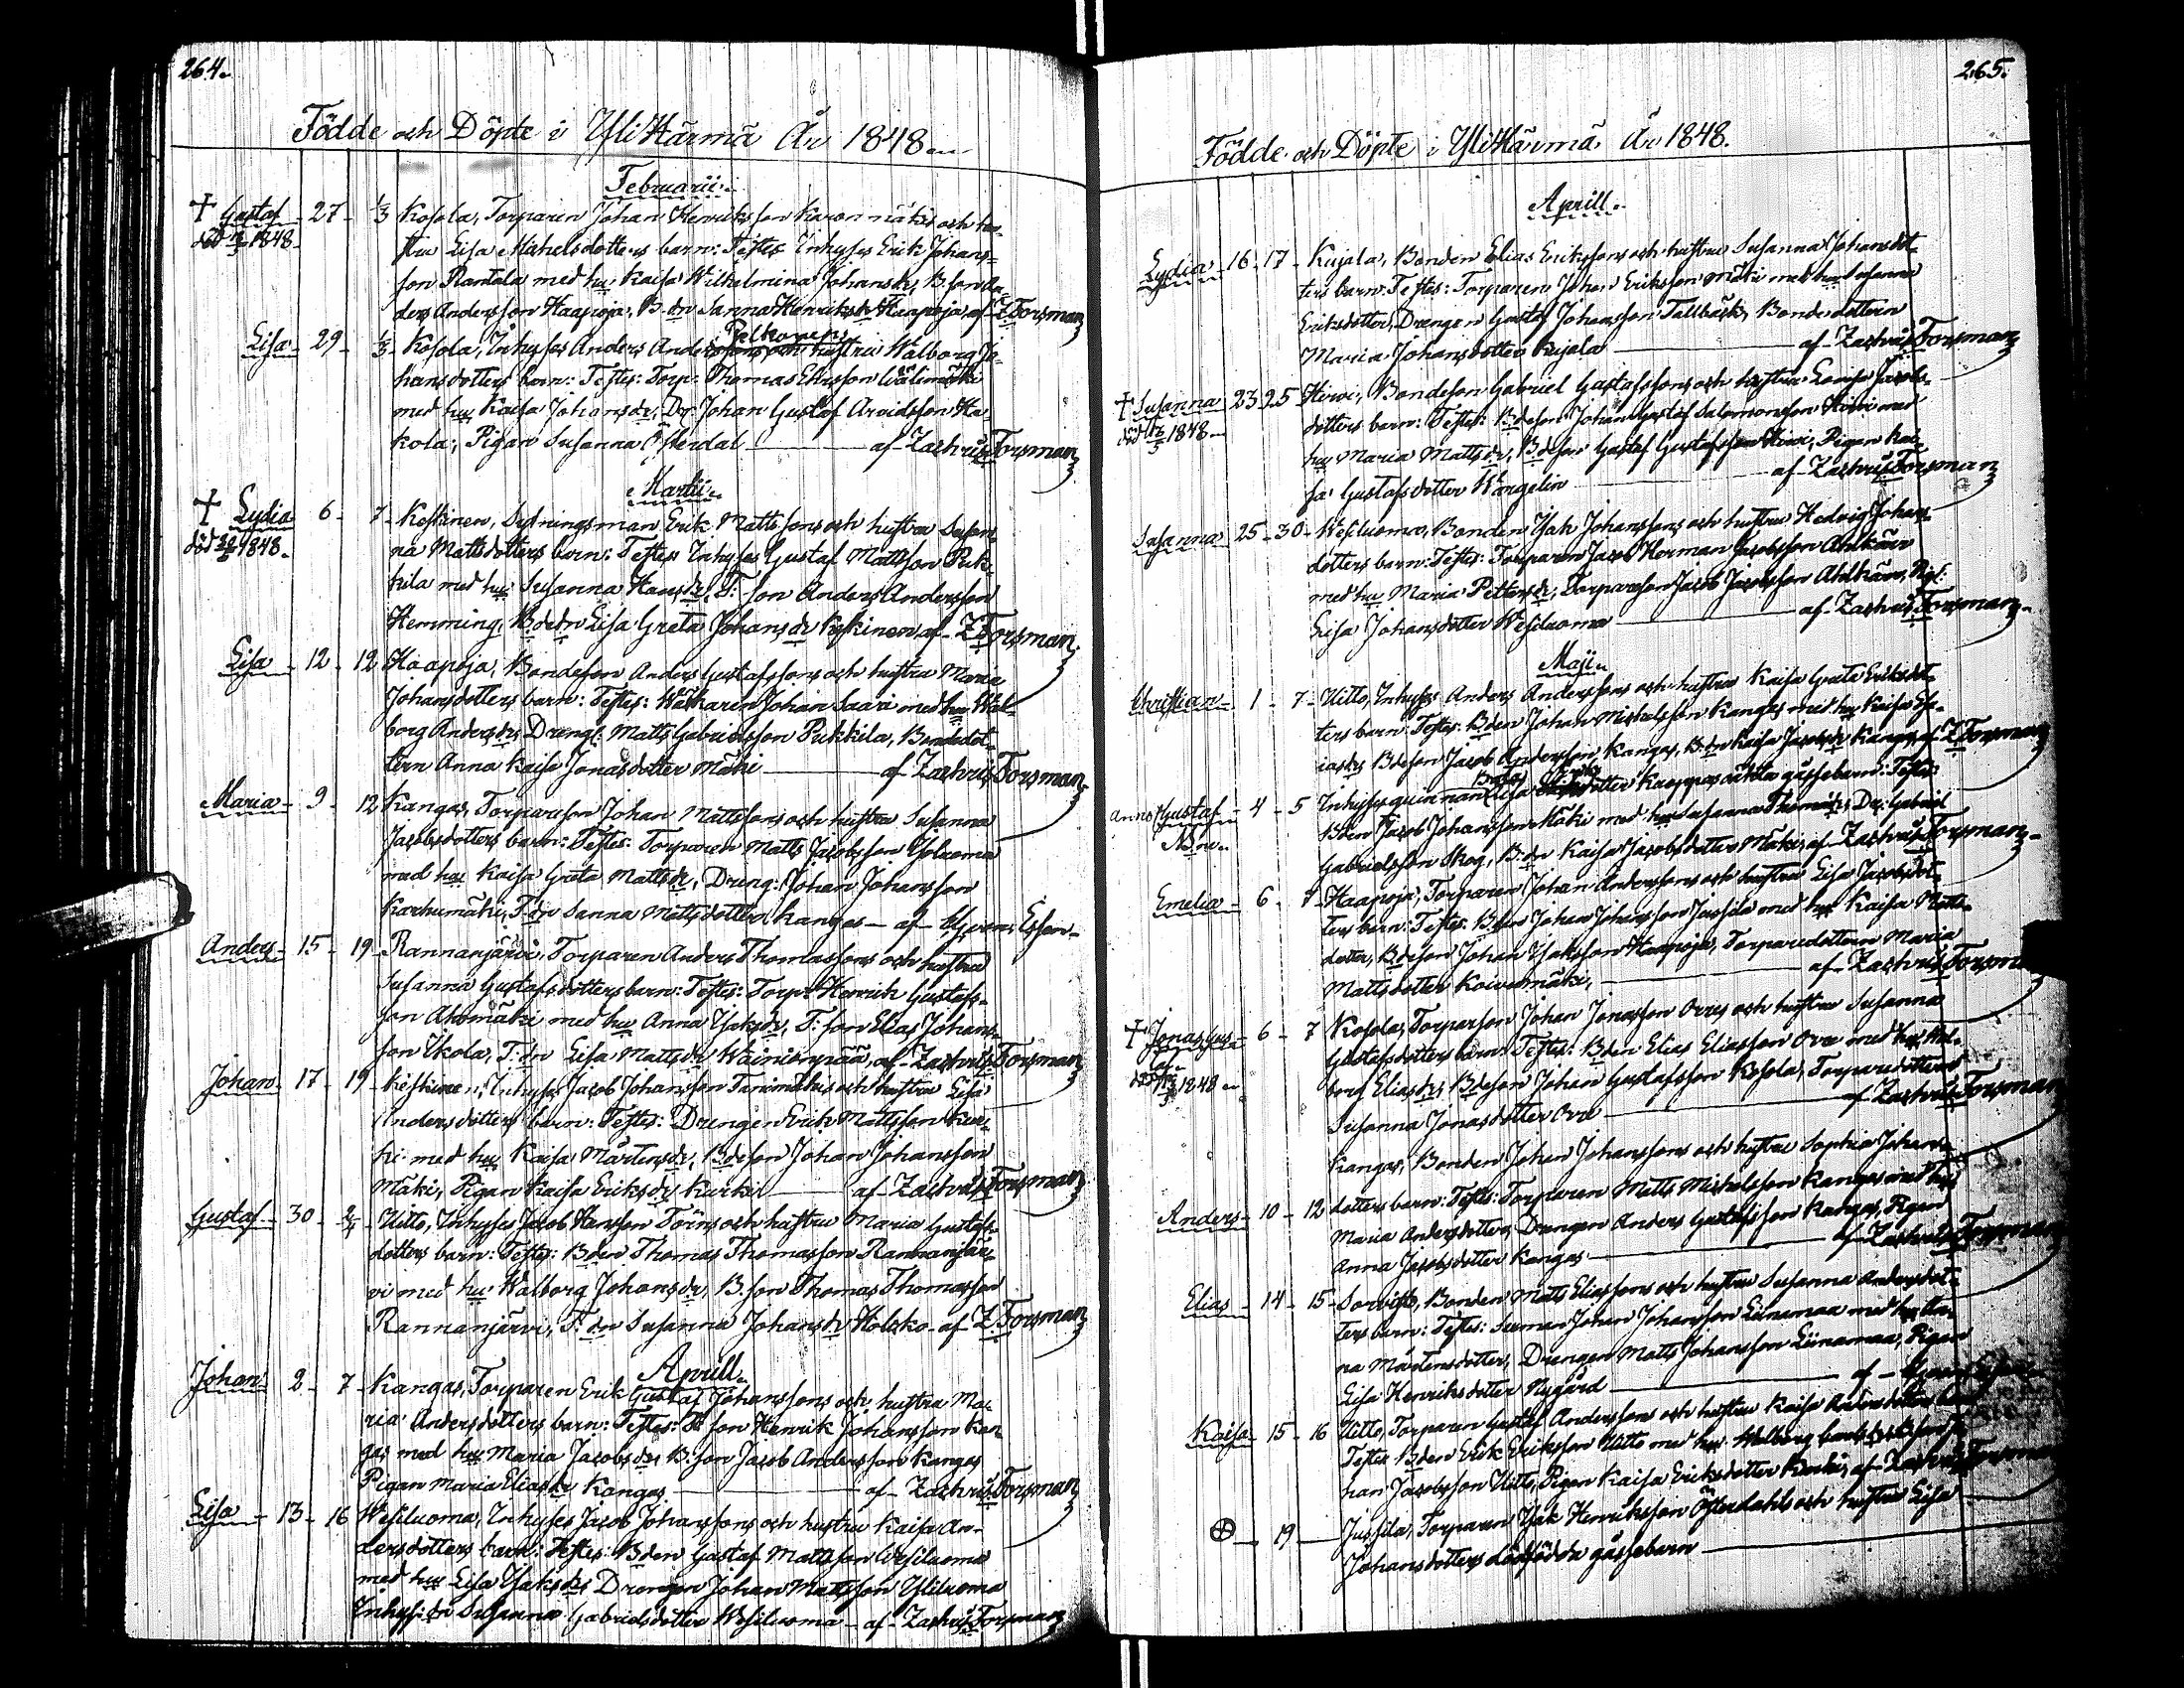 264.
Födde och Döpte i YliHärmä År 1848
Februarii
† Gustaf - 27 - 1/3 Kosola, Torparen Johan Henriksson Karonmäkis och hu-
död 1848. stru Lisa Michelsdotters barn: Testes: Inhyses Erik Johans-
son Rantala med hu Kaisa Wilhelmina Johansdr, B.son An-
ders Andersson Haapoja, B dn Sanna Henriksdr Haapoja, af Z Forsman
Lisa - 29 - 1/3 Kosola, Inhyses Anders Anderssons Pelkonens och hustru Walborg Jo-
hansdotters barn: Testes: Torp: Thomas Eliasson Wälimäki
med hu Kaisa Johansdr, Dr: Johan Gustaf Arvidsson Ha-
kola, Pigan Susanna Österdal — af Zachris Forsman
Martii
† Lydia 6 - 7 - Koskinen, Sytningsman Erik Mattssons och hustru Susan-
död 1848. na Mattsdotters barn: Testes: Inhyses Gustaf Mattsson Puk-
kila med hu Susanna Hansdr, T: son Anders Andersson
Hemming, B dotn Lisa Greta Johansdr Koskinen af Z Forsman
Lisa - 12 - 12 Haapoja, Bondeson Anders Gustafssons och hustru Maria
Johansdotters barn: Testes: Wäfkaren Johan Saari med hu Wal-
borg Andersdr, Dreng: Matts Gabrielsson Pukkila, Bondedot-
tern Anna Kaisa Jonasdotter Mäki — af Zachris Forsman
Maria - 9 - 12 Kangas, Torpareson Johan Mattssons och hustru Susanna
Jacobsdotters barn: Testes: Torparen Matts Jacobsson Yliluoma
med hu Kaisa Greta Mattsdr, Dreng: Johan Johansson
Karhumäki, T. dn Sanna Mattsdotter Kangas — af
Anders - 15 - 19 - Rannanjärvi, Torparen Anders Thomassons och hustru
Susanna Gustafsdotters barn: Testes: Torp: Henrik Gustafs-
son Ahomäki med hu Anna Isaksdr, T: son Elias Johans-
son Ikola, T: dn Lisa Mattsdr Wainionpää, af Zachris Forsman
Johan - 17 - 19 - Keskinen, Inhyses Jacob Johansson Tanimäkis och hustru Lisa
Andersdotters barn: Testes: Drengen Erik Mattsson Kur-
ki med hu Kaisa Mårtensdr, B deson Johan Johansson
Mäki, Pigan Kaisa Eriksdr Kurki — af Zachris Forsman
Gustaf - 30 - Uitto, Inhyses Jacob Hansson Törns och hustru Maria Gustafs-
dotters barn: Testes: B den Thomas Thomasson Rannanjär-
vi med hu Walborg Johansdr, B. son Thomas Thomasson
Rannanjärvi, T: dn Susanna Johansdr Holsko - af Z Forsman
Aprill
Johan 2 - 7 - Kangas, Torparen Erik Gustaf Johanssons och hustru Ma-
ria Andersdotters barn: Testes: B. son Henrik Johansson Kan-
gas med hu Maria Jacobsdr, B. son Jacob Andersson Kangas
Pigan Maria Eliasdr Kangas — af Zachris Forsman
Lisa - 13 - 16 Wesiluoma, Inhyses Jacob Johanssons och hustru Kaisa An-
dersdotters barn: Testes: B den Gustaf Mattsson Wesiluoma
med hu Lisa Isaksdr, Drengen Johan Mattsson Yliluoma
Inhys: dn Susanna Gabrielsdotter Wesiluoma - af - Zachris Forsman
265.
Födde och Döpte i YliHärmä År 1848.
Aprill
Lydia - 16 - 17 - Kujala, Bonden Elias Erikssons och hustru Susanna Johansdot-
ters barn: Testes: Torparen Johan Eriksson Mäki med hu Susanna
Eriksdotter, Drengen Gustaf Johansson Tallbäck, Bondedottern
Maria Johansdotter Kujala — af Zachris Forsman
† Susanna 23 25 Hiwi, Bondeson Gabriel Gustafssons och hustru Lovisa Jacobs-
död 1848 dotters barn: Testes: B. deson Johan Gustaf Salomonsson Hiwi med
hu Maria Mattsdr, B. deson Gustaf Gustafsson Hiwi, Pigan Kai-
sa Gustafsdotter Wargelin — af Zachris Forsman
Susanna - 25 - 30 - Wesiluoma, Bonden Isak Johanssons och hustru Hedvig Johans-
dotters barn: Testes: Torparen Jacob Herman Jacobsson Ahlkärr
med hu Maria Pettersdr, Torpareson Jacob Jacobsson Ahlkärr, Pig:
Lisa Johansdotter Wesiluoma — af Zachris Forsman
Maji
Christian - 1 - 7 - Uitto, Inhyses Anders Anderssons och hustru Kaisa Greta Eriksdot-
ters barn: Testes: B den Johan Michelsson Kangas med hu Kaisa Es-
aiasdr, B deson Jacob Andersson Kangas, B. dn Kaisa Jacobsdr Kangas, af Z Forsman
Gustaf - 4 - 5 Inhysesquinnan Lisa dotter Kaappas oäkta gåssebarn: Testes:
B den Jacob Johansson Mäki med hu Susanna Thomasdr, Dr: Gabriel
Gabrielsson Skog, B. dn Kaisa Jacobsdotter Mäki, af Zachris Forsman
Emelia - 6 - 7 - Haapoja, Torparen Johan Anderssons och hustru Lisa Jacobsdot-
ters barn: Testes: B. den Johan Johansson Jussila med hu Kaisa Matts-
dotter, B deson Johan Isaksson Haapoja, Torparedottern Maria
Mattsdotter Koivumäki, — af Zachris Forsman
† Jonas Gus- - 6 - 7 Kosola, Torpareson Johan Jonasson Ovres och hustru Susanna
taf Gustafsdotters barn: Testes: B. den Elias Eliasson Ovre med hu Wal-
död 1848 borg Eliasdr, B deson Johan Gustafsson Kosola, Torparedottern
Susanna Jonasdotter Ovre — af Zachris Forsman
Kangas, Bonden Johan Johanssons och hustru Sophia Johans-
Anders - 10 - 12 dotters barn: Testes: Torparen Matts Michelsson Kangas med hu
Maria Andersdotter, Drengen Anders Gustafsson Kangas, Pigan
Anna Jacobsdotter Kangas — af Zachris Forsman
Elias - 14 - 15 - Sorvisto, Bonden Matts Eliassons och hustru Susanna Andersdot-
ters barn: Testes: Johan Johansson Liinamaa med hu An-
na Mårtensdotter, Drengen Matts Johansson Liinamaa, Pigan
Lisa Henriksdotter Nygård — af
Kaisa - 15 - 16 Uitto, Torparen Gustaf Anderssons och hustru Kaisa Andersdotters barn
Testes: B den Erik Eriksson Uitto med hu Walborg
han Jacobsson Uitto, Pigan Kaisa Eriksdotter af Zachris Forsman
⊕ - 19 — Jussila, Torparen Isak Henriksson Österdahls och hustru Lisa
Johansdotters dödfödda gåssebarn —